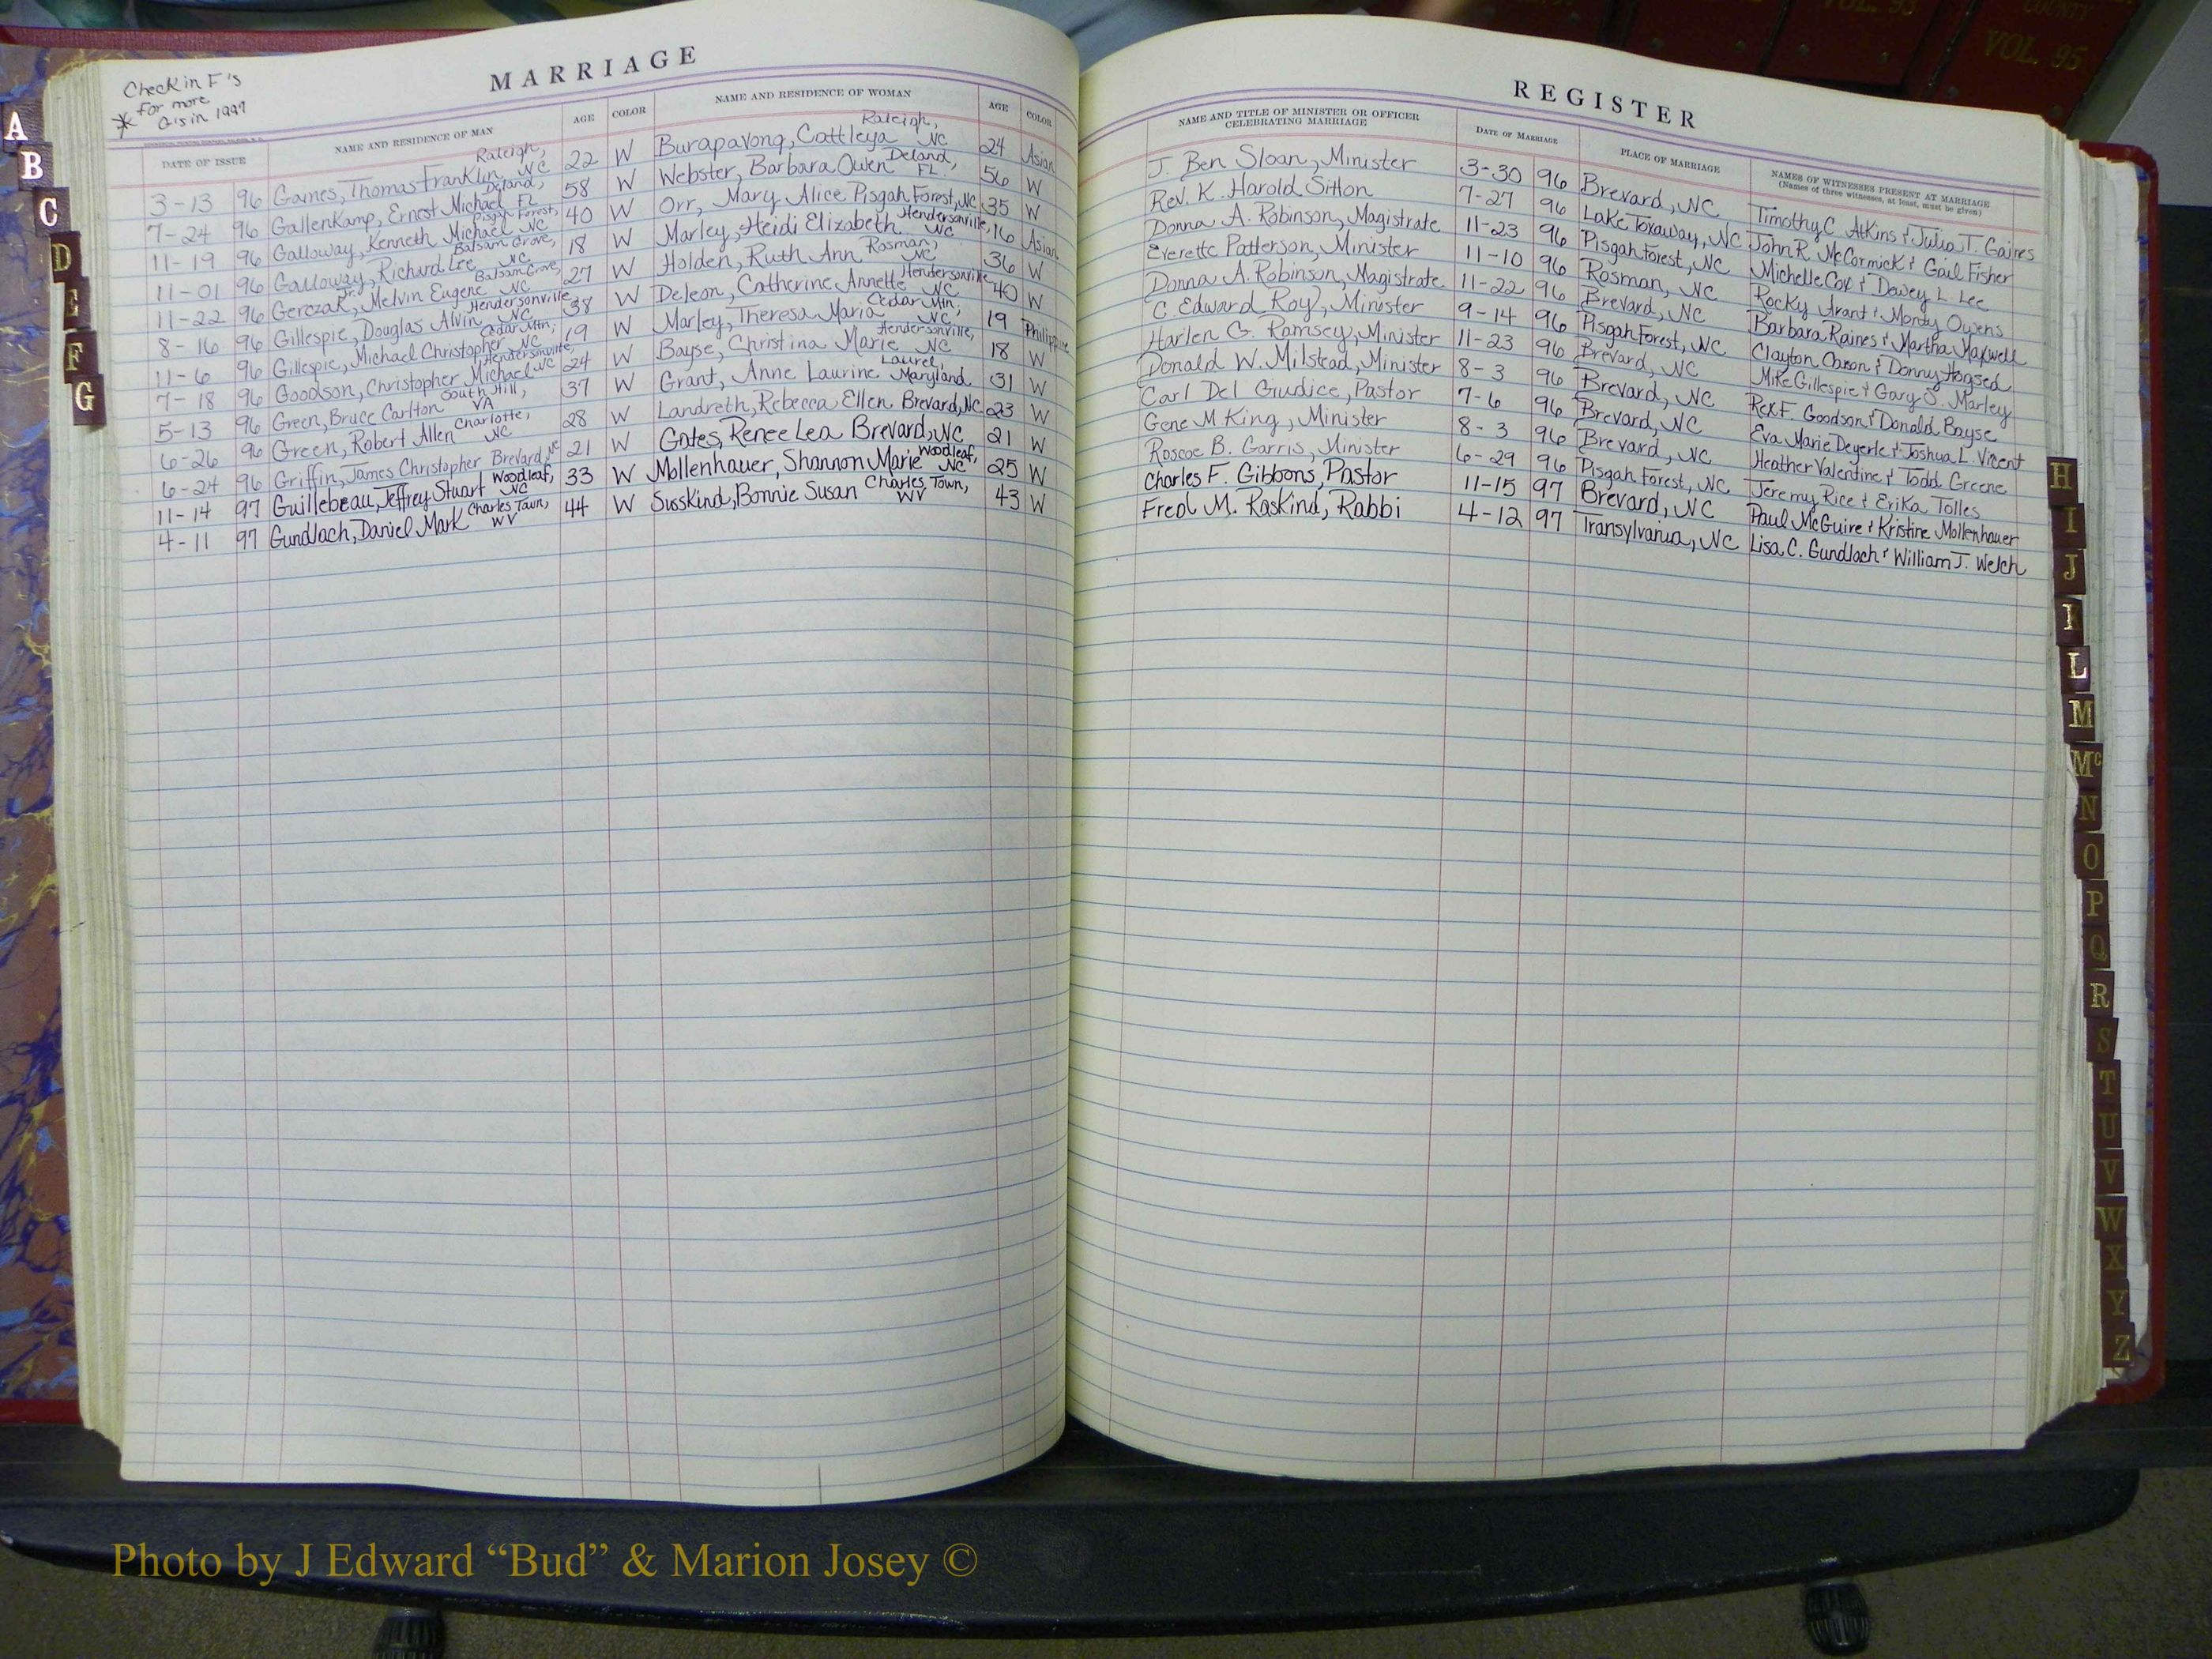 Check in F's
* For more
G's in 1997
MARRIAGE REGISTER
DATE OF ISSUE NAME AND RESIDENCE OF MAN AGE COLOR NAME AND RESIDENCE OF WOMAN AGE COLOR NAME AND TITLE OF MINISTER OR OFFICER CELEBRATING MARRIAGE DATE OF MARRIAGE PLACE OF MARRIAGE NAMES OF WITNESSES PRESENT AT MARRIAGE (Names of three witnesses, at least, must be given)
3-13 96 Gaines, Thomas Franklin Raleigh, NC 22 W Burapavong, Cattleya Raleigh, NC 24 Asian J. Ben Sloan, Minister 3-30 96 Brevard, NC Timothy C. Atkins & Julia T. Gaines
7-24 96 Gallenkamp, Ernest Michael Deland, FL 58 W Webster, Barbara Owen Deland, FL 56 W Rev. K. Harold Sitton 7-27 96 Lake Toxaway, NC John R. McCormick & Gail Fisher
11-19 96 Galloway, Kenneth Michael Pisgah Forest, NC 40 W Orr, Mary Alice Pisgah Forest, NC 35 W Donna A. Robinson, Magistrate 11-23 96 Pisgah Forest, NC Michelle Cox & Dewey L. Lee
11-01 96 Galloway, Richard Lee Balsam Grove, NC 18 W Marley, Heidi Elizabeth Hendersonville, NC 16 Asian Everette Patterson, Minister 11-10 96 Rosman, NC Rocky Arant & Mordy Owens
11-22 96 Gerczak, Jr., Melvin Eugene Balsam Grove, NC 27 W Holden, Ruth Ann Rosman, NC 36 W Donna A. Robinson, Magistrate 11-22 96 Brevard, NC Barbara Raines & Martha Maxwell
8-16 96 Gillespie, Douglas Alvin Hendersonville, NC 38 W Deleon, Catherine Annette Hendersonville, NC 40 W C. Edward Roy, Minister 9-14 96 Pisgah Forest, NC Clayton Charon & Donny Hogsed
11-6 96 Gillespie, Michael Christopher Cedar Mtn, NC 19 W Marley, Theresa Maria Cedar Mtn, NC 19 Philippine Harlen G. Ramsey, Minister 11-23 96 Brevard, NC Mike Gillespie & Gary S. Marley
7-18 96 Goodson, Christopher Michael Hendersonville, NC 24 W Bayse, Christina Marie Hendersonville, NC 18 W Donald W. Milstead, Minister 8-3 96 Brevard, NC Rex F. Goodson & Donald Bayse
5-13 96 Green, Bruce Carlton South Hill, VA 37 W Grant, Anne Laurine Laurel, Maryland 31 W Carl Del Giudice, Pastor 7-6 96 Brevard, NC Eva Marie Deyerle & Joshua L. Vincent
6-26 96 Green, Robert Allen Charlotte, NC 28 W Landreth, Rebecca Ellen Brevard, NC 23 W Gene M King, Minister 8-3 96 Brevard, NC Heather Valentine & Todd Greene
6-24 96 Griffin, James Christopher Brevard, NC 21 W Gates, Renee Lea Brevard, NC 21 W Roscoe B. Garris, Minister 6-29 96 Pisgah Forest, NC Jeremy Rice & Erika Tolles
11-14 97 Guillebeau, Jeffrey Stuart Woodleaf, NC 33 W Mollenhauer, Shannon Marie Woodleaf, NC 25 W Charles F. Gibbons, Pastor 11-15 97 Brevard, NC Paul McGuire & Kristine Mollenhauer
4-11 97 Gundlach, Daniel Mark Charles Town, WV 44 W Susskind, Bonnie Susan Charles Town, WV 43 W Fred M. Raskind, Rabbi 4-12 97 Transylvania, NC Lisa C. Gundlach & William J. Welch
A
B
C
D
E
F
G
H
I
J
K
L
M
Mc
N
O
P
Q
R
S
T
U
V
W
X
Y
Z
VOL. 93
COUNTY
VOL. 95
Photo by J Edward “Bud” & Marion Josey ©